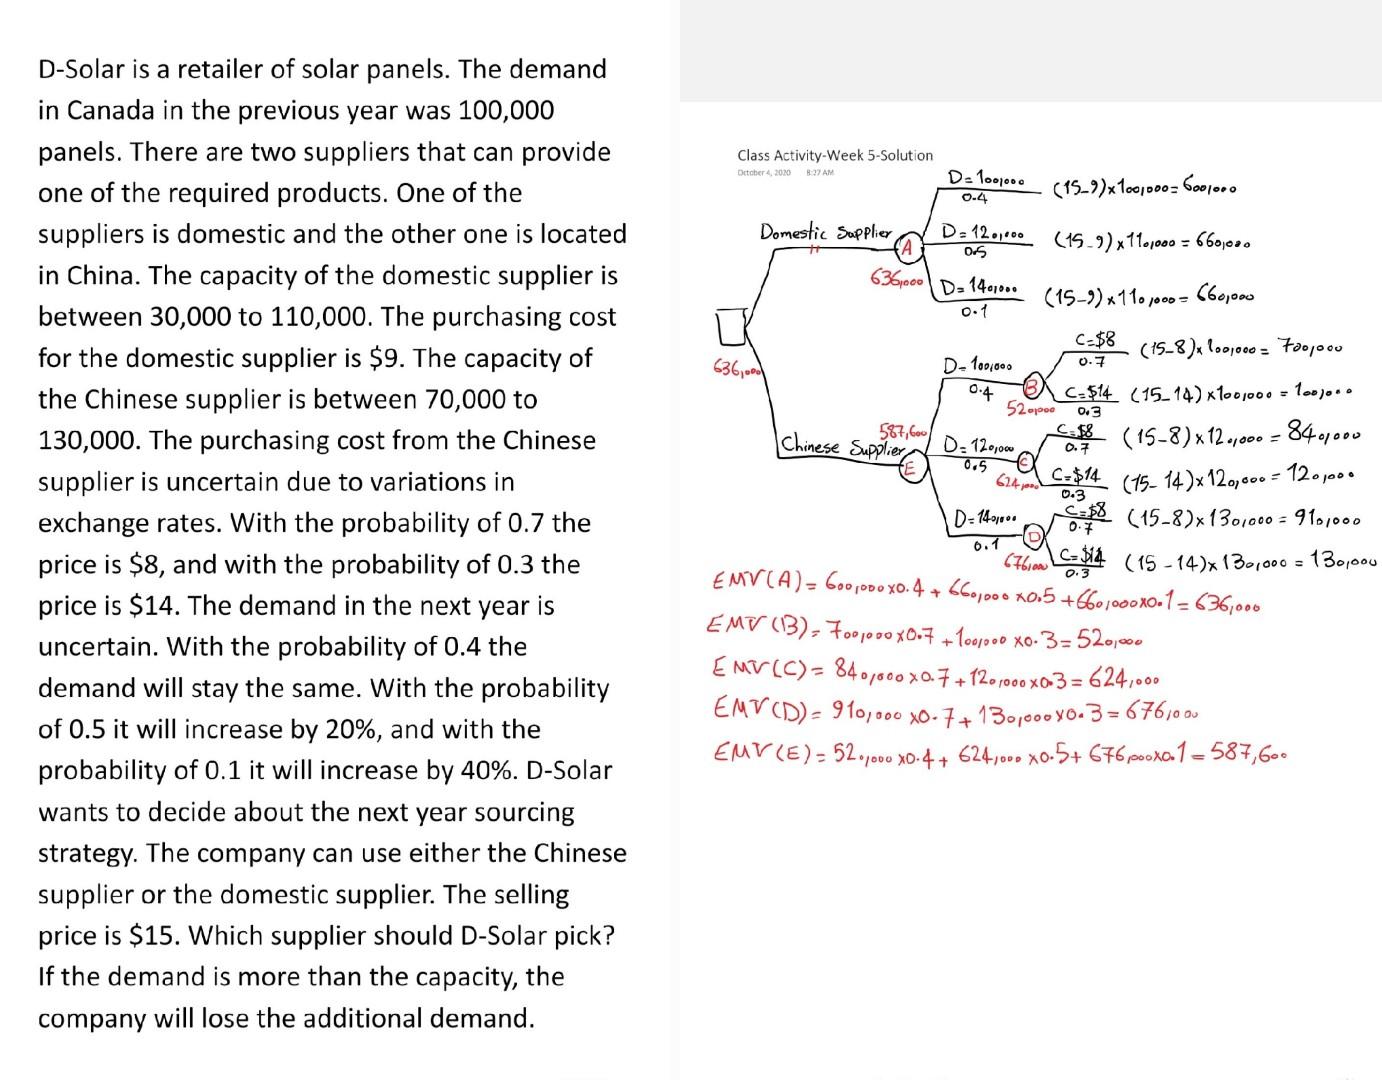 D-Solar is a retailer of solar panels. The demand
in Canada in the previous year was 100,000
panels. There are two suppliers that can provide
one of the required products. One of the
suppliers is domestic and the other one is located
in China. The capacity of the domestic supplier is
between 30,000 to 110,000. The purchasing cost
for the domestic supplier is $9. The capacity of
the Chinese supplier is between 70,000 to
130,000. The purchasing cost from the Chinese
supplier is uncertain due to variations in
exchange rates. With the probability of 0.7 the
price is $8, and with the probability of 0.3 the
price is $14. The demand in the next year is
uncertain. With the probability of 0.4 the
demand will stay the same. With the probability
of 0.5 it will increase by 20%, and with the
probability of 0.1 it will increase by 40%. D-Solar
wants to decide about the next year sourcing
strategy. The company can use either the Chinese
supplier or the domestic supplier. The selling
price is $15. Which supplier should D-Solar pick?
If the demand is more than the capacity, the
company will lose the additional demand.
Class Activity-Week 5-Solution
October 4, 2020 8:27 AM
D=100,000 (15-9)×100,000=600,000
0.4
Domestic Supplier A D=120,000 (15-9)×110,000=660,000
0.5
636,000 D=140,000 (15-9)×110,000=660,000
0.1
C=$8 (15-8)×100,000=700,000
0.7
636,000
D=100,000 B
0.4 C=$14 (15-14)×100,000=100,000
520,000 0.3
587,600 C=$8 (15-8)×120,000=840,000
0.7
Chinese Supplier E D=120,000 C
0.5 C=$14 (15-14)×120,000=120,000
624,000 0.3
C=$8 (15-8)×130,000=910,000
0.7
D=140,000 D
0.1 C=$14 (15-14)×130,000=130,000
676,000 0.3
EMV(A)=600,000×0.4+660,000×0.5+660,000×0.1=636,000
EMV(B)=700,000×0.7+100,000×0.3=520,000
EMV(C)=840,000×0.7+120,000×0.3=624,000
EMV(D)=910,000×0.7+130,000×0.3=676,000
EMV(E)=520,000×0.4+624,000×0.5+676,000×0.1=587,600